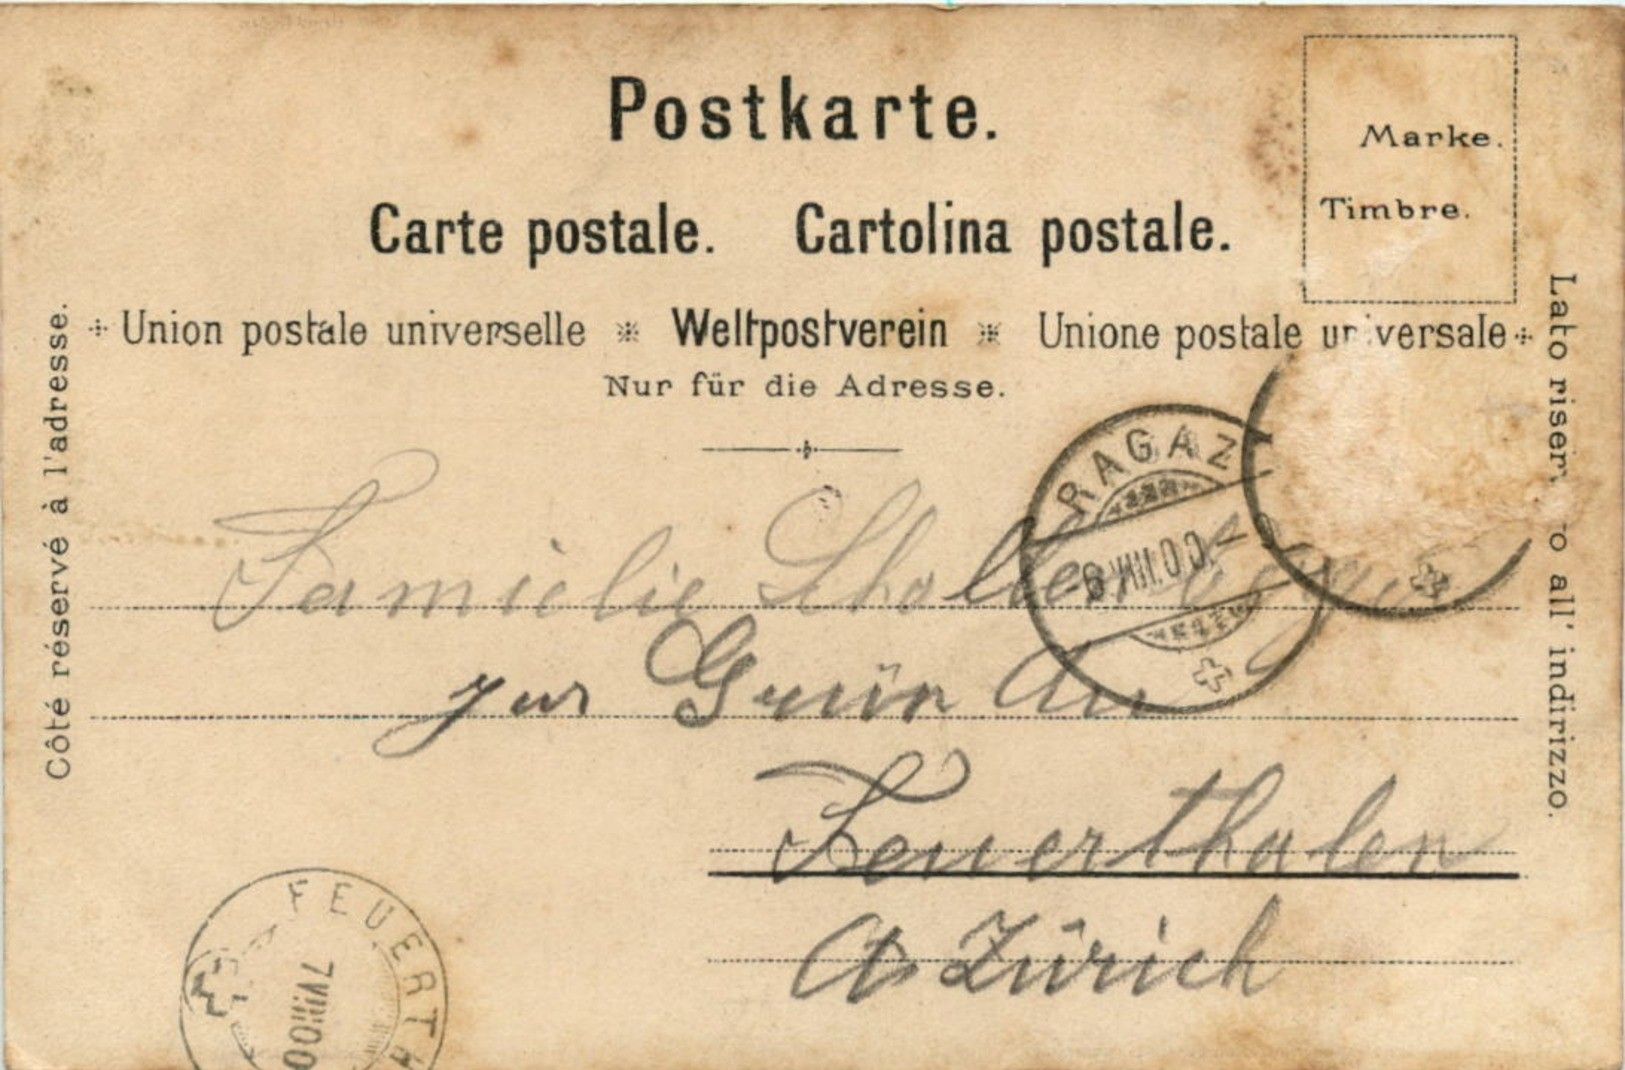 Postkarte.
Marke.
Timbre.
Carte postale. Cartolina postale.
Union postale universelle Weltpostverein Unione postale un versale
Nur für die Adresse.
Côté réservé à l'adresse.
Lato riser o all' indirizzo.
RAGAZ
Familie
zur Grün Au
Feuerthalen
A. Zürich
FEUERTH
7 VIII 00